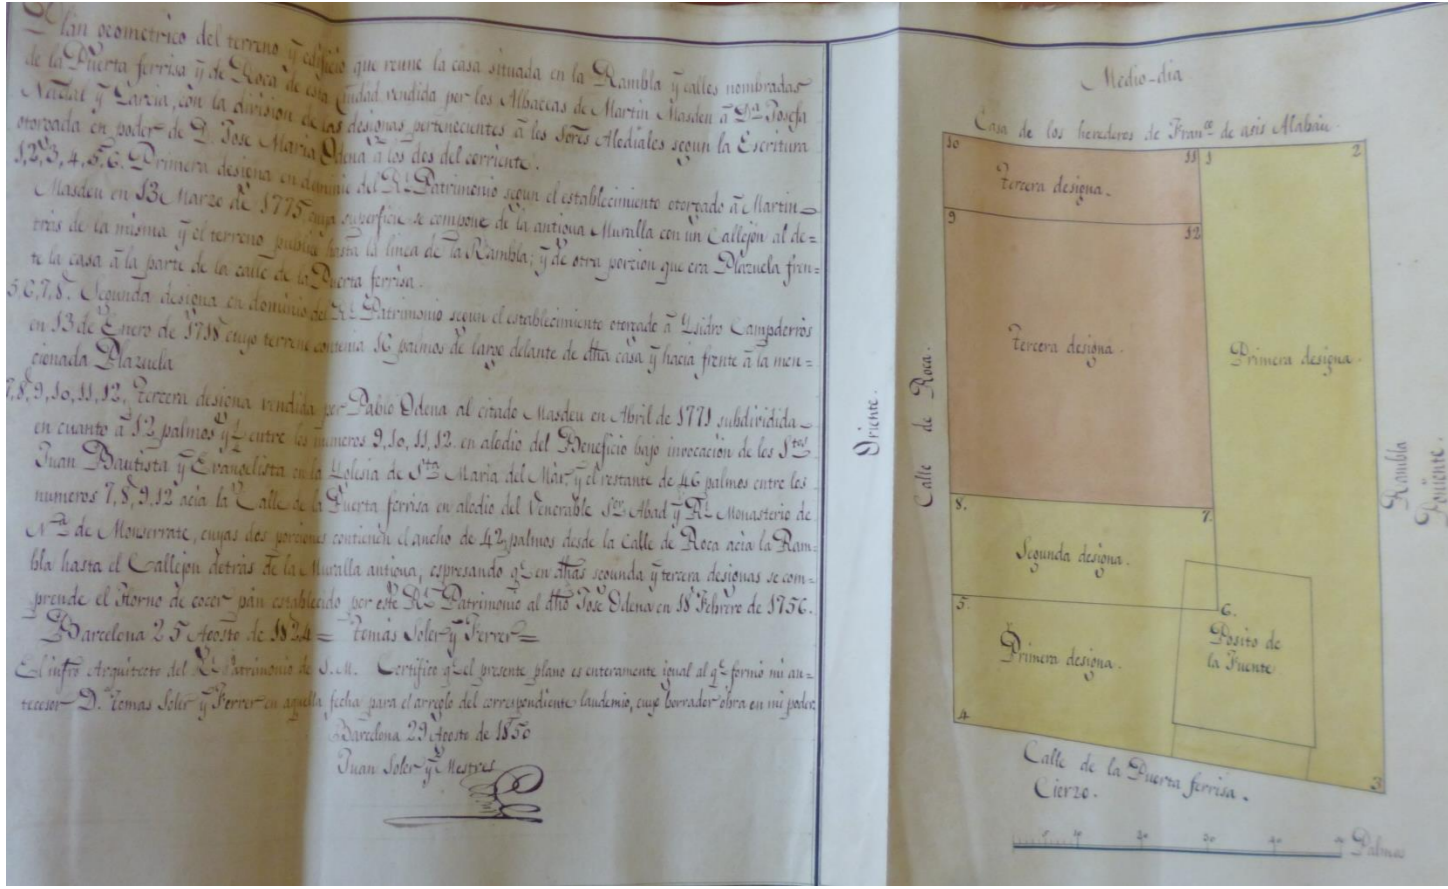 Plan geometrico del terreno ÿ edificio que reune la casa situada en la Rambla ÿ calles nombradas
de la Puerta ferrisa ÿ de Roca de esta Ciudad vendida por los Albaceas de Martin Masdeu â Dª Josefa
Nadal ÿ Garcia, con la division de las designas pertenecientes â los Sōres Alodiales segun la Escritura
otorgada en poder de D. Jose Maria Odena â los dos del corriente.
1,2,3,4,5,6. Primera designa en dominio del Rˡ Patrimonio segun el establecimiento otorgado â Martin
Masdeu en 13 Marzo de 1775 cuya superficie se compone de la antigua Muralla con un Callejon al de=
trás de la misma ÿ el terreno publico hasta la linea de la Rambla; ÿ de otra porcion que era Plazuela fren=
te la casa â la parte de la calle de la Puerta ferrisa.
5,6,7,8. Segunda designa en dominio del Rˡ Patrimonio segun el establecimiento otorgado â Ysidro Campderros
en 13 de Enero de 1718 cuyo terreno contenia 16 palmos de largo delante de dħa casa ÿ hacia frente â la men=
cionada Plazuela
7,8,9,10,11,12. Tercera designa vendida por Pablo Odena al citado Masdeu en Abril de 1771 subdividida
en cuanto â 12 palmos ÿ ½ entre los numeros 9,10,11,12 en alodio del Beneficio bajo invocacion de los Sᵗᵒˢ
Juan Bautista ÿ Evangelista en la Yglesia de Sᵗᵃ Maria del Mar, ÿ el restante de 46 palmos entre los
numeros 7,8,9,12 acia la Calle de la Puerta ferrisa en alodio del Venerable Sᵒʳ Abad ÿ Rˡ Monasterio de
Nᵃ Sᵃ de Monserrate, cuyas dos porciones contienen el ancho de 42 palmos desde la calle de Roca acia la Ram=
bla hasta el Callejon detrás de la Muralla antigua, espresando qᵉ en dħas segunda ÿ tercera designas se com=
prende el Horno de cocer pan establecido por este Rˡ Patrimonio al dħo Jose Odena en 18 Febrero de 1756.
Barcelona 25 Agosto de 1824 = Tomás Soler ÿ Ferrer =
El infrō Arquitecto del Rˡ Patrimonio de S.M. Certifico qᵉ el presente plano es enteramente igual al qᵉ formó mi an=
tecesor D. Tomas Soler ÿ Ferrer en aquella fecha para el arreglo del correspondiente laudemio, cuyo borrador obra en mi poder.
Barcelona 29 Agosto de 1850
Juan Soler ÿ Mestres
Medio-dia.
Casa de los herederos de Franᶜᵒ de asis Mabau.
10
11
1
2
Tercera designa.
9
12
Tercera designa.
Primera designa.
Oriente.
Calle de Roca.
Rambla
Poniente.
8.
7.
Segunda designa.
5.
6.
Primera designa.
Posito de
la Fuente
4
3
Calle de la Puerta ferrisa.
Cierzo.
Palmos